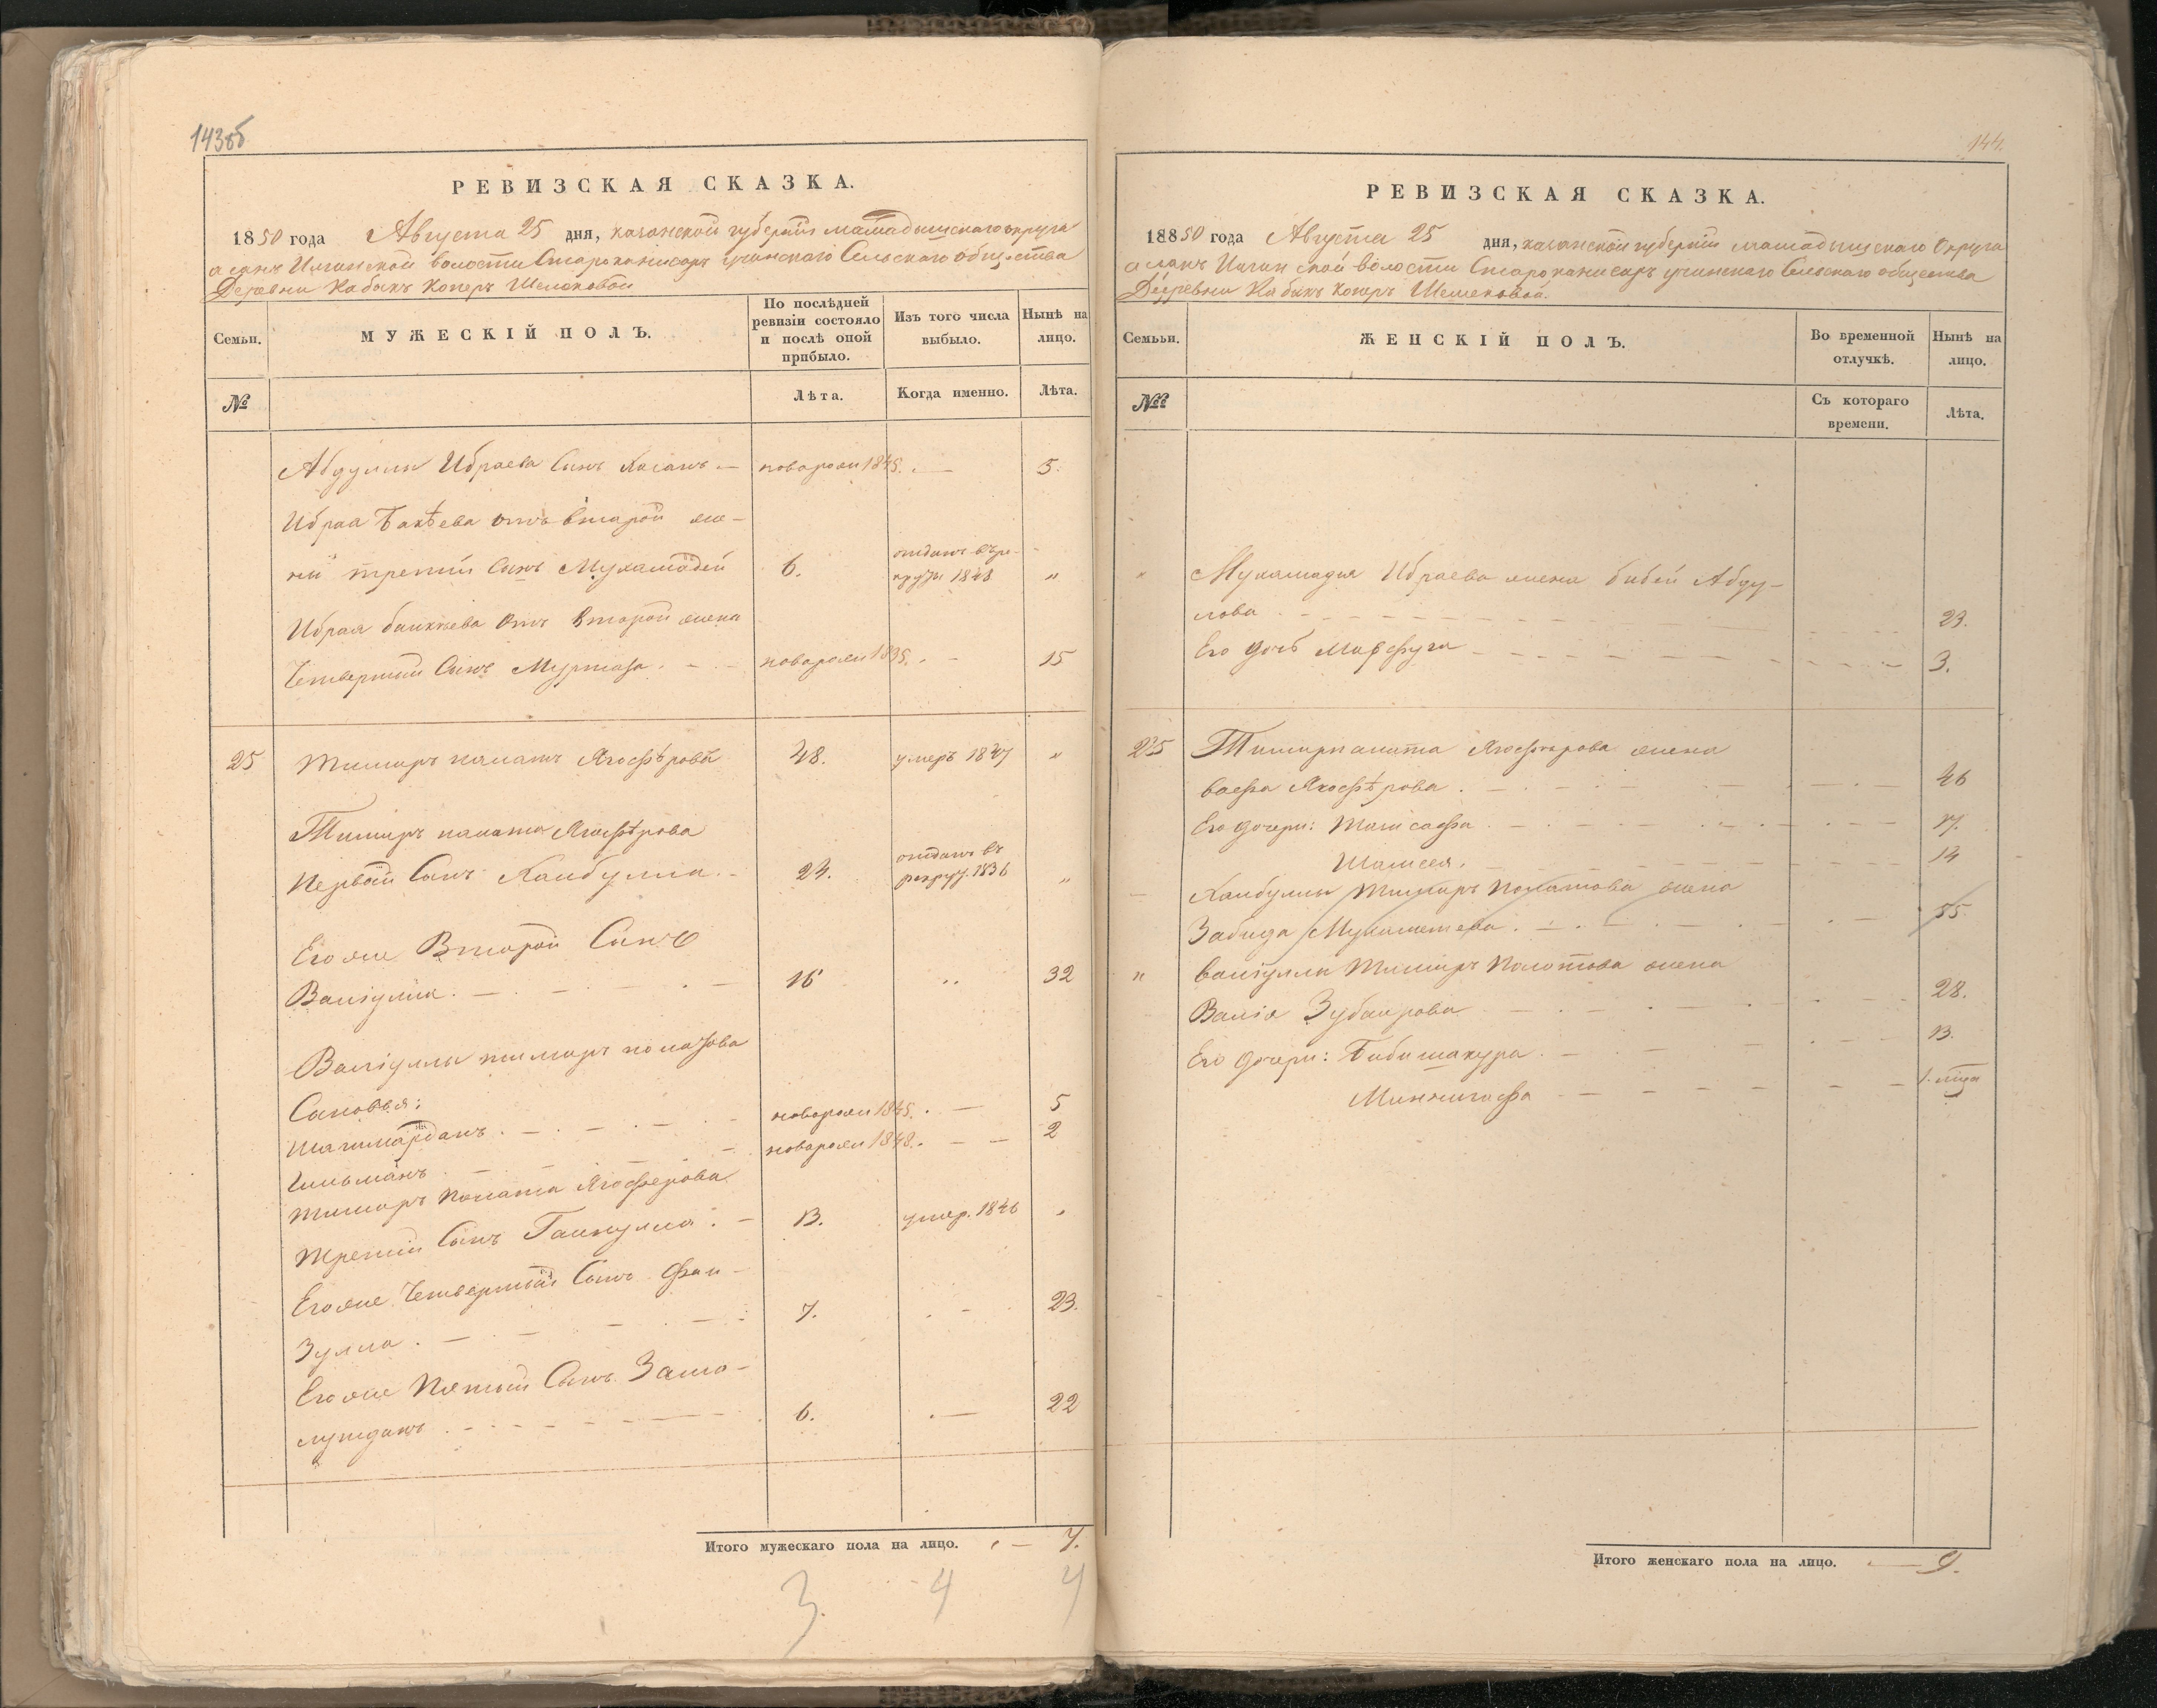 143об
РЕВИЗСКАЯ СКАЗКА.
1850 года Августа 25 дня, казанской губерніи мамадышскаго округа
Илгинской волости Сельскаго общества
Деревни Кабакъ Коперъ
Семьи.
МУЖЕСКІЙ ПОЛЪ.
По послѣдней ревизіи состояло и послѣ оной прибыло.
Изъ того числа выбыло.
Нынѣ на лицо.
№
Лѣта.
Когда именно.
Лѣта.
Абдуллы Ибраева Сынъ Хасанъ — поворожд 1845. — 5.
Ибрая Бакѣева отъ второй же-
отданъ въ ре-
ны третій Сынъ Мухамадей 6. круты 1848 „
Ибрая Бикѣева Отъ второй жены
Четвертый Сынъ Муртаза. — поворож 1835. — 15
25 Тимиръ палатъ Ягофѣровъ 48. умеръ 1847 „
Тимиръ палата Ягофѣрова
отданъ въ
Первый Сынъ Хайбулла. — 24. рекру. 1836 „
Его же Второй Сынъ
Валіулла. — 16 „ 32
Валіуллы тимиръ полатова
Сыновья:
Шагимарданъ. — новорож 1845. — 5
Гильманъ — новорож 1848. — 2
Тимиръ Полата Ягоферова
третій Сынъ Гайнулла. — 13. умер. 1846 „
Его же Четвертый Сынъ Фаи-
зулла. — 7. — 23.
Его же Пятый Сынъ Зама-
лутдинъ. — 6. — 22
Итого мужескаго пола на лицо. — 7.
3. 4 4
144.
РЕВИЗСКАЯ СКАЗКА.
18850 года Августа 25 дня, казанской губерніи мамадышскаго Округа
волости Сельскаго общества
Деревни Кабакъ Коперъ
Семьи.
ЖЕНСКІЙ ПОЛЪ.
Во временной отлучкѣ.
Нынѣ на лицо.
№№
Съ котораго времени.
Лѣта.
„ Мухамадея Ибраева жена Бибей Абду-
лова — 23.
Его дочь Марфуга — 3.
25 Тимирпалата Ягофѣрова жена
Васфа Якофѣрова. — 46
Его дочери: — 17.
Шамсея. — 14
— Хайбуллы Тимиръ Полатова жена
Забида Мухаметева. — 55
„ Валіуллы Тимиръ Полотова жена
Валія Зубаирова — 28.
Его дочери: Бибишакура. — 13.
— 1. лѣта
Итого женскаго пола на лицо. — 9.